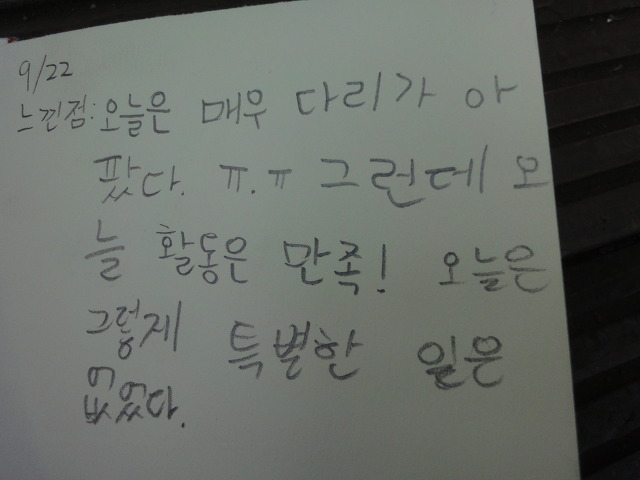 9/22
느낀점:오늘은 매우 다리가 아
팠다. ㅠ.ㅠ 그런데 오
늘 활동은 만족! 오늘은
그렇제 특별한 일은
없었다.